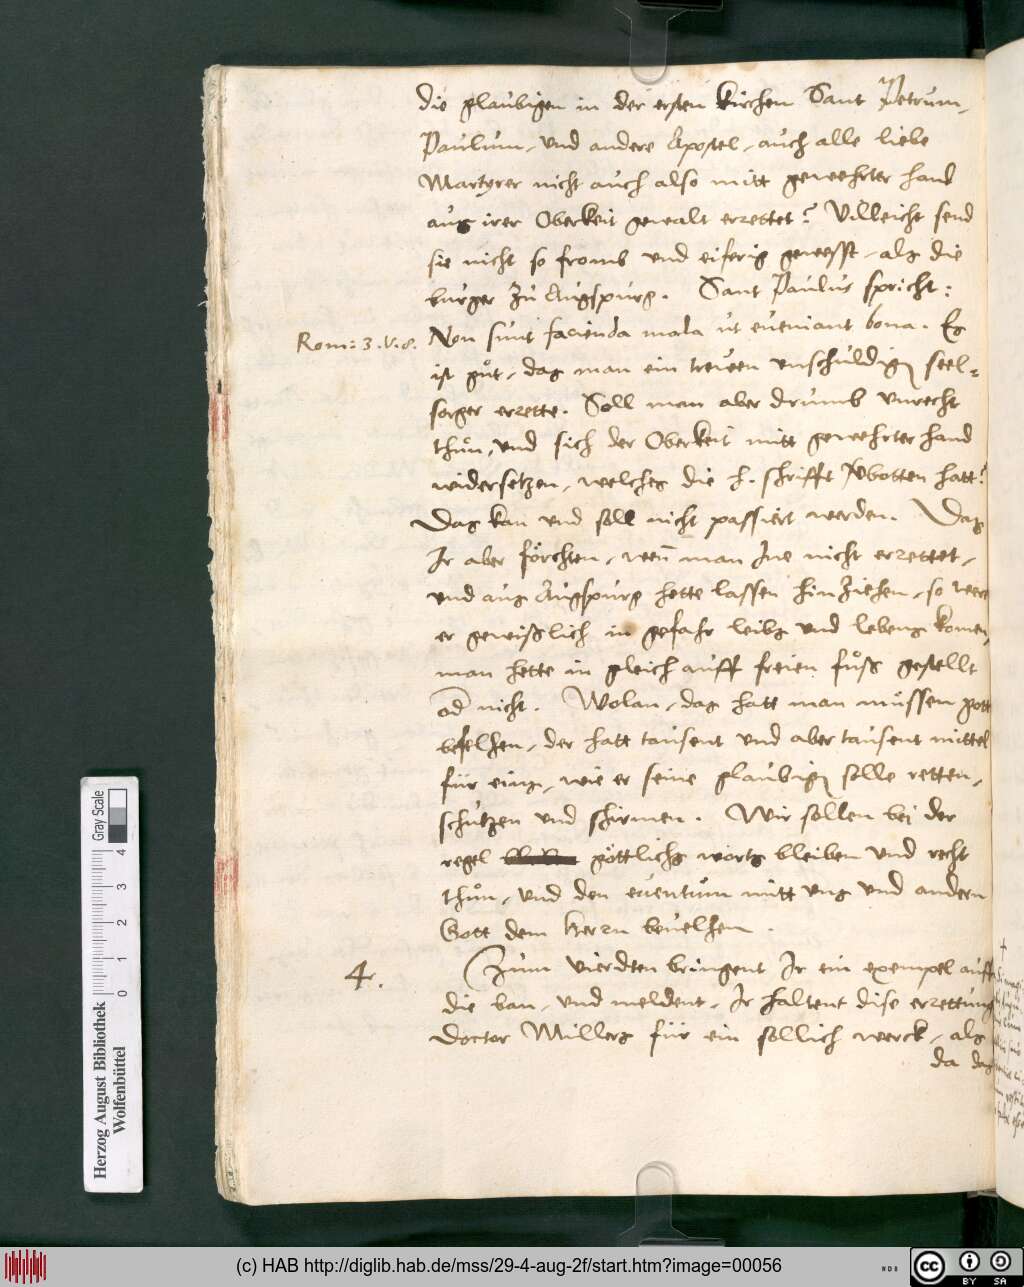 die glaubigen in der ersten kirchen Sant Petrum,
Paulum, und andere Apostel, auch alle liebe
Martyrer nicht auch also mitt geweehrter hand
aus irer Oberkeit gewalt errettet? Villeicht send
sie nicht so fromb und eiferig gewesst, als die
burger zů Augspurg. Sant Paulus spricht:
Rom: 3. v. 8. Non sunt facienda mala ut eveniant bona. Es
ist gůt, das man ein treüen unschuldigen seel-
sorger errette. Soll man aber drumb unrecht
thůn, und sich der Oberkeit mitt geweehrter hand
widersetzen, welches die h. schrifft verbotten hatt?
Das kan und soll nicht passiert werden. Das
Ir aber förchten, wen̄ man Ine nicht errettet,
und aus Augspurg hette lassen hin ziehen, so weer
er gewißlich in gefahr leibs und lebens komen,
man hette in gleich auff freien fůß gestellt
od nicht. Wolan, das hatt man müssen gott
befelhen, der hatt tausent und aber tausent mittel
für eins, wie er seine glaubigen solle retten,
schutzen und schirmen. Wir sollen bei der
regel göttlichs worts bleiben und recht
thůn, und den eventum mitt uns und andern
Gott dem Herrn bevelhen.
4. Zum vierdten bringent Ir ein exempel auff
die ban, und meldent, Ir haltent dise errettung
Doctor Millers für ein sollich werck, als
da das
Herzog August Bibliothek
Wolfenbüttel
Gray Scale
0 1 2 3 4
(c) HAB http://diglib.hab.de/mss/29-4-aug-2f/start.htm?image=00056
cc BY SA